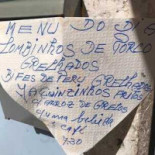 MENU DO DIA
LOMBINHOS DE PORCO
GRELHADOS
BIFES DE PERU GRELHADOS
JAQUINZINHOS FRITOS
C/ ARROZ DE GRELOS
C/ UMA bebida
+ café
7,50